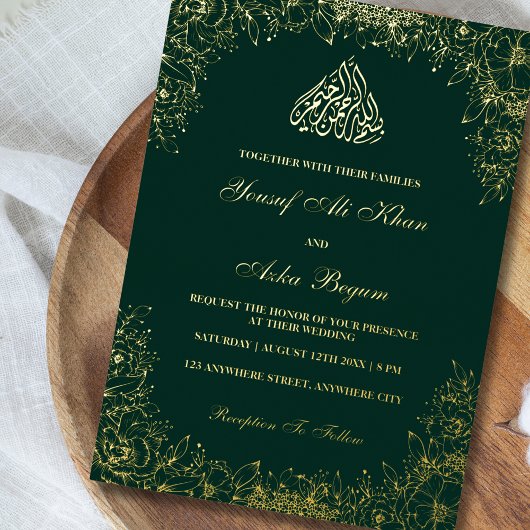 بسم الله الرحمن الرحيم
TOGETHER WITH THEIR FAMILIES
Yousuf Ali Khan
AND
Azka Begum
REQUEST THE HONOR OF YOUR PRESENCE
AT THEIR WEDDING
SATURDAY | AUGUST 12TH 20XX | 8 PM
123 ANYWHERE STREET, ANYWHERE CITY
Reception To Follow